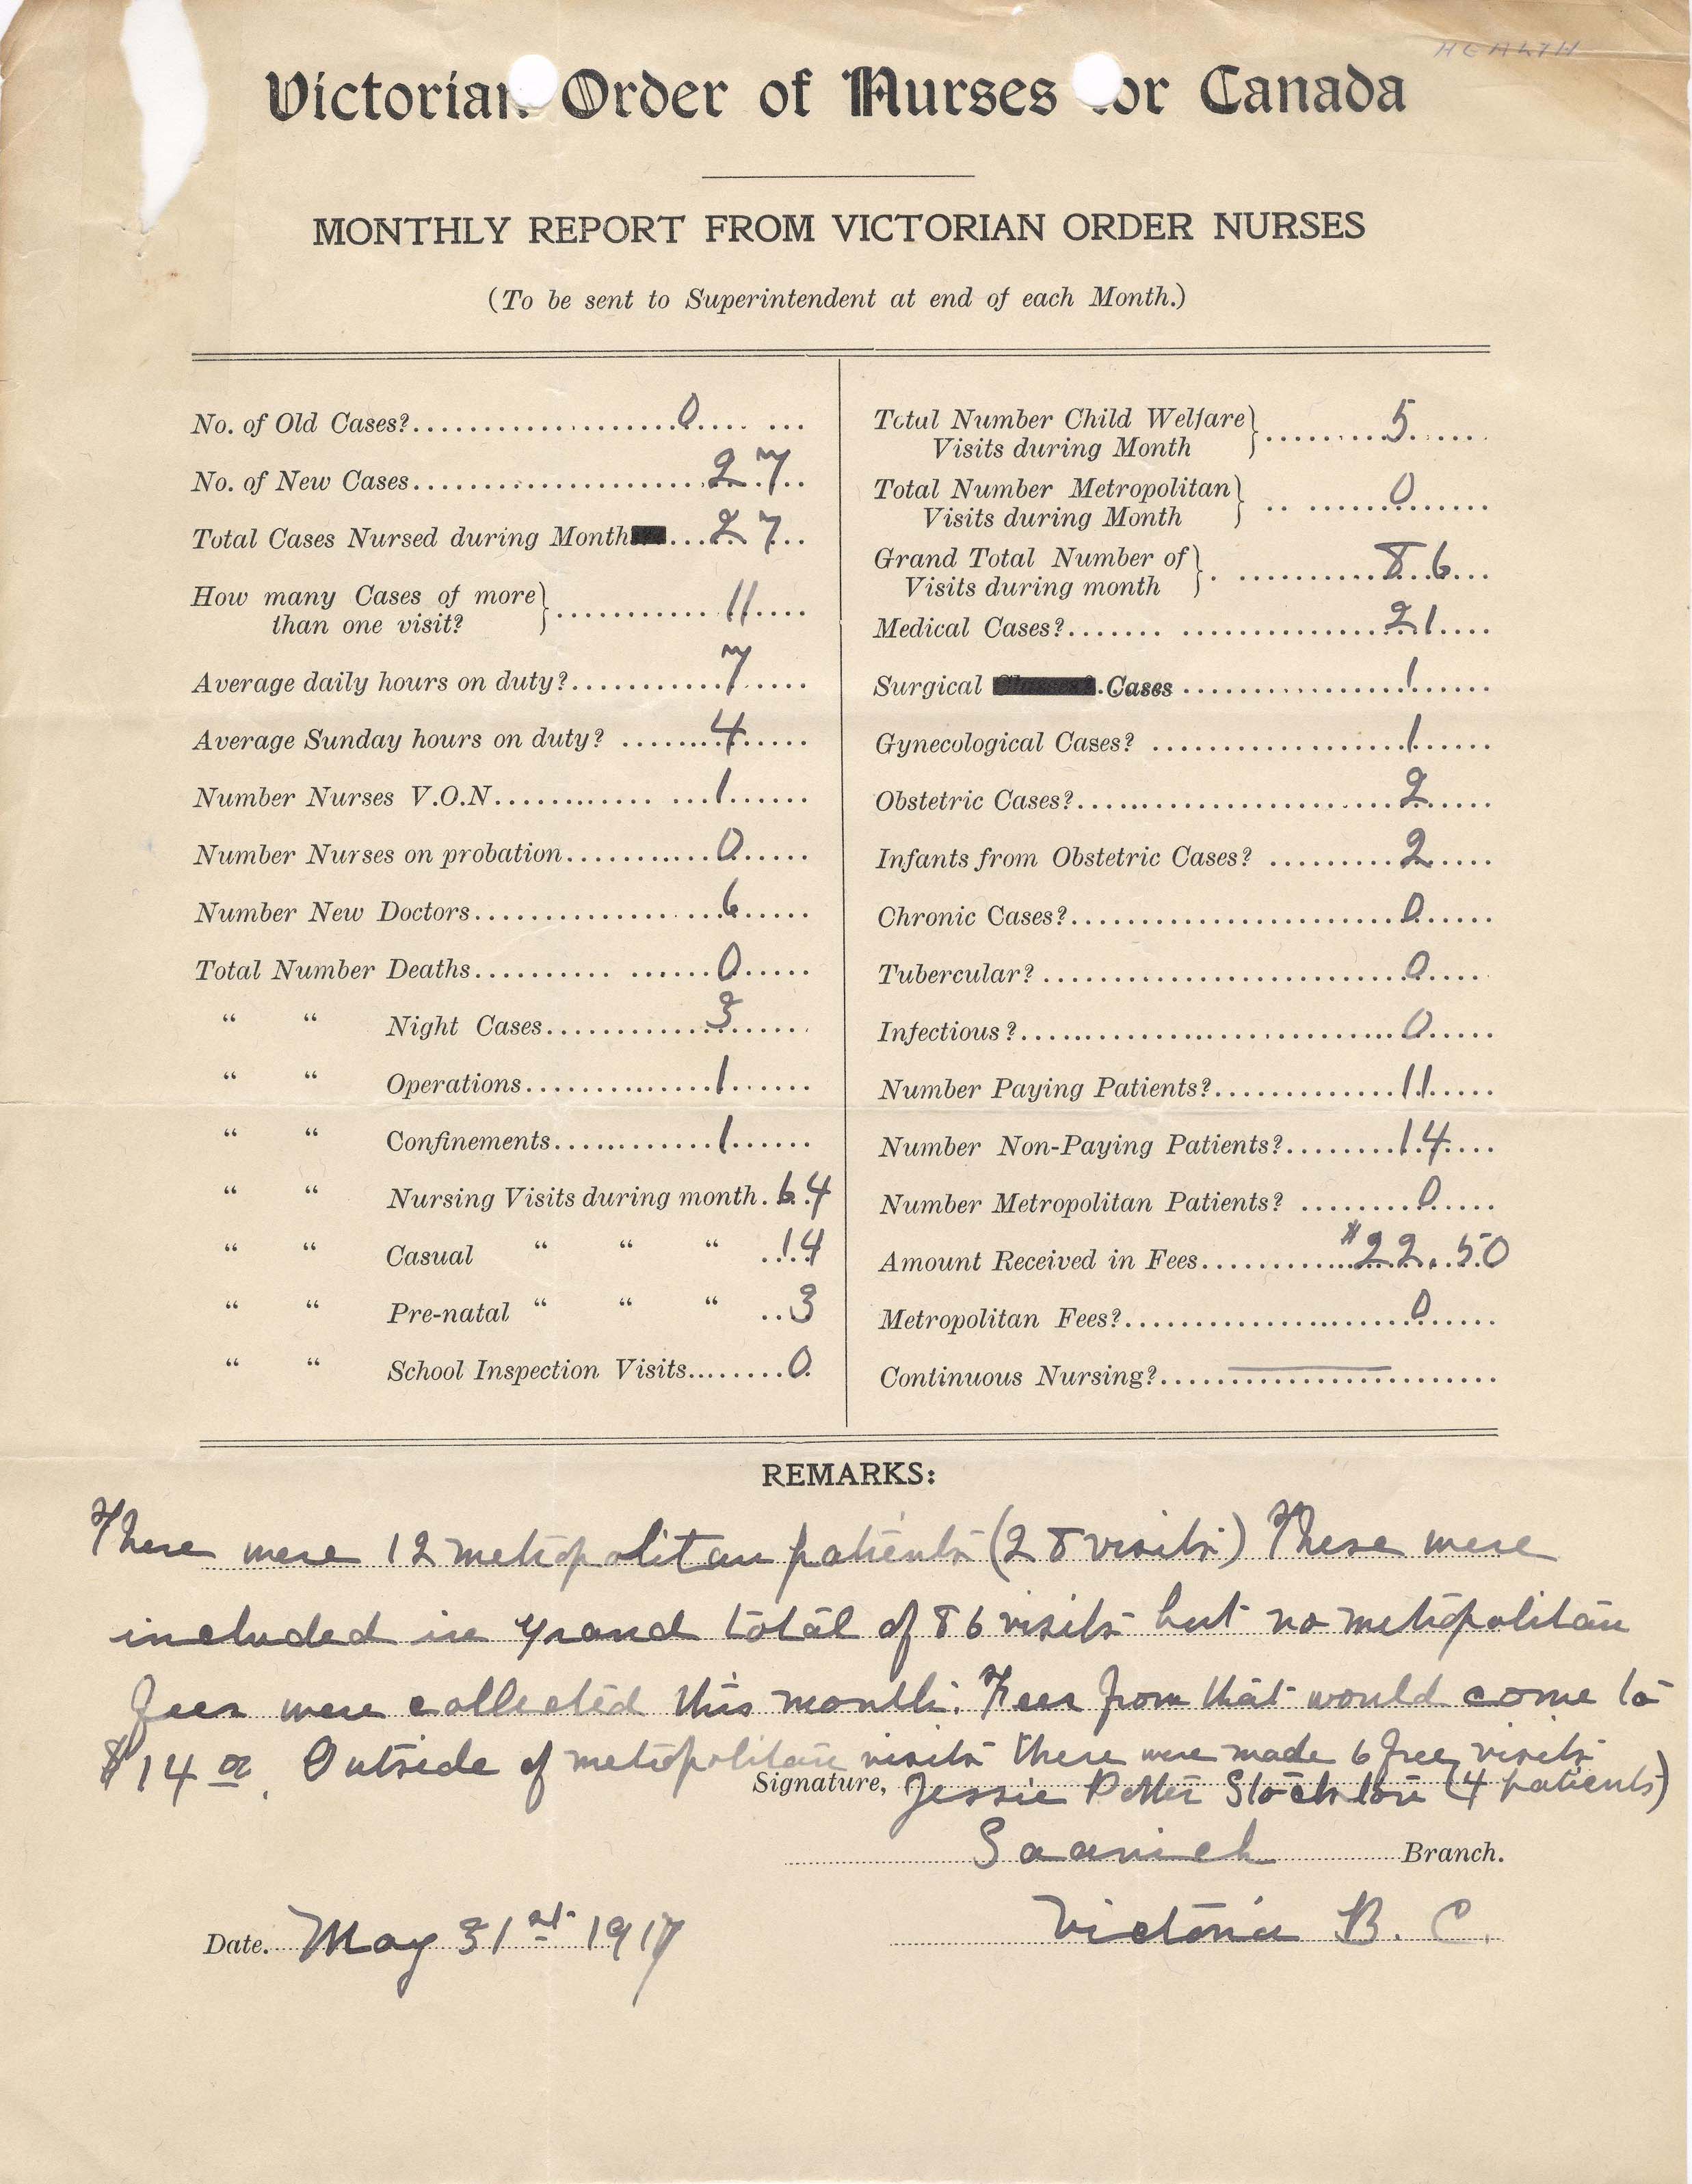 HEALTH
Victorian Order of Nurses for Canada
MONTHLY REPORT FROM VICTORIAN ORDER NURSES
(To be sent to Superintendent at end of each Month.)
No. of Old Cases?.......0.......
No. of New Cases.......27..
Total Cases Nursed during Month...27...
How many Cases of more
than one visit? ............11....
Average daily hours on duty?............7.....
Average Sunday hours on duty? .......4......
Number Nurses V.O.N.............1......
Number Nurses on probation...........0......
Number New Doctors..................6.....
Total Number Deaths.......... ......0.....
“ “ Night Cases............3.......
“ “ Operations.............1......
“ “ Confinements...........1......
“ “ Nursing Visits during month. 64
“ “ Casual “ “ “ ..14
“ “ Pre-natal “ “ “ ..3
“ “ School Inspection Visits........0.
Total Number Child Welfare
Visits during Month .........5......
Total Number Metropolitan
Visits during Month .. .......0.......
Grand Total Number of
Visits during month . ...........86...
Medical Cases?....... ...............21....
Surgical Cases ....................1......
Gynecological Cases? ....................1......
Obstetric Cases?........................2.....
Infants from Obstetric Cases? .........2.....
Chronic Cases?........................0......
Tubercular? ..........................0.....
Infectious?...........................0.....
Number Paying Patients?..............11.....
Number Non-Paying Patients?.........14....
Number Metropolitan Patients? ........0.....
Amount Received in Fees............$22.50
Metropolitan Fees?....................0......
Continuous Nursing?..........................
REMARKS:
There were 12 metropolitan patients (28 visits) These were
included in grand total of 86 visits but no metropolitan
fees were collected this month. Fees from that would come to
$14 00. Outside of metropolitan visits there were made 6 free visits
(4 patients)
Signature, Jessie Potter Stockton
Saanich Branch.
Date. May 31st 1917
Victoria B. C.